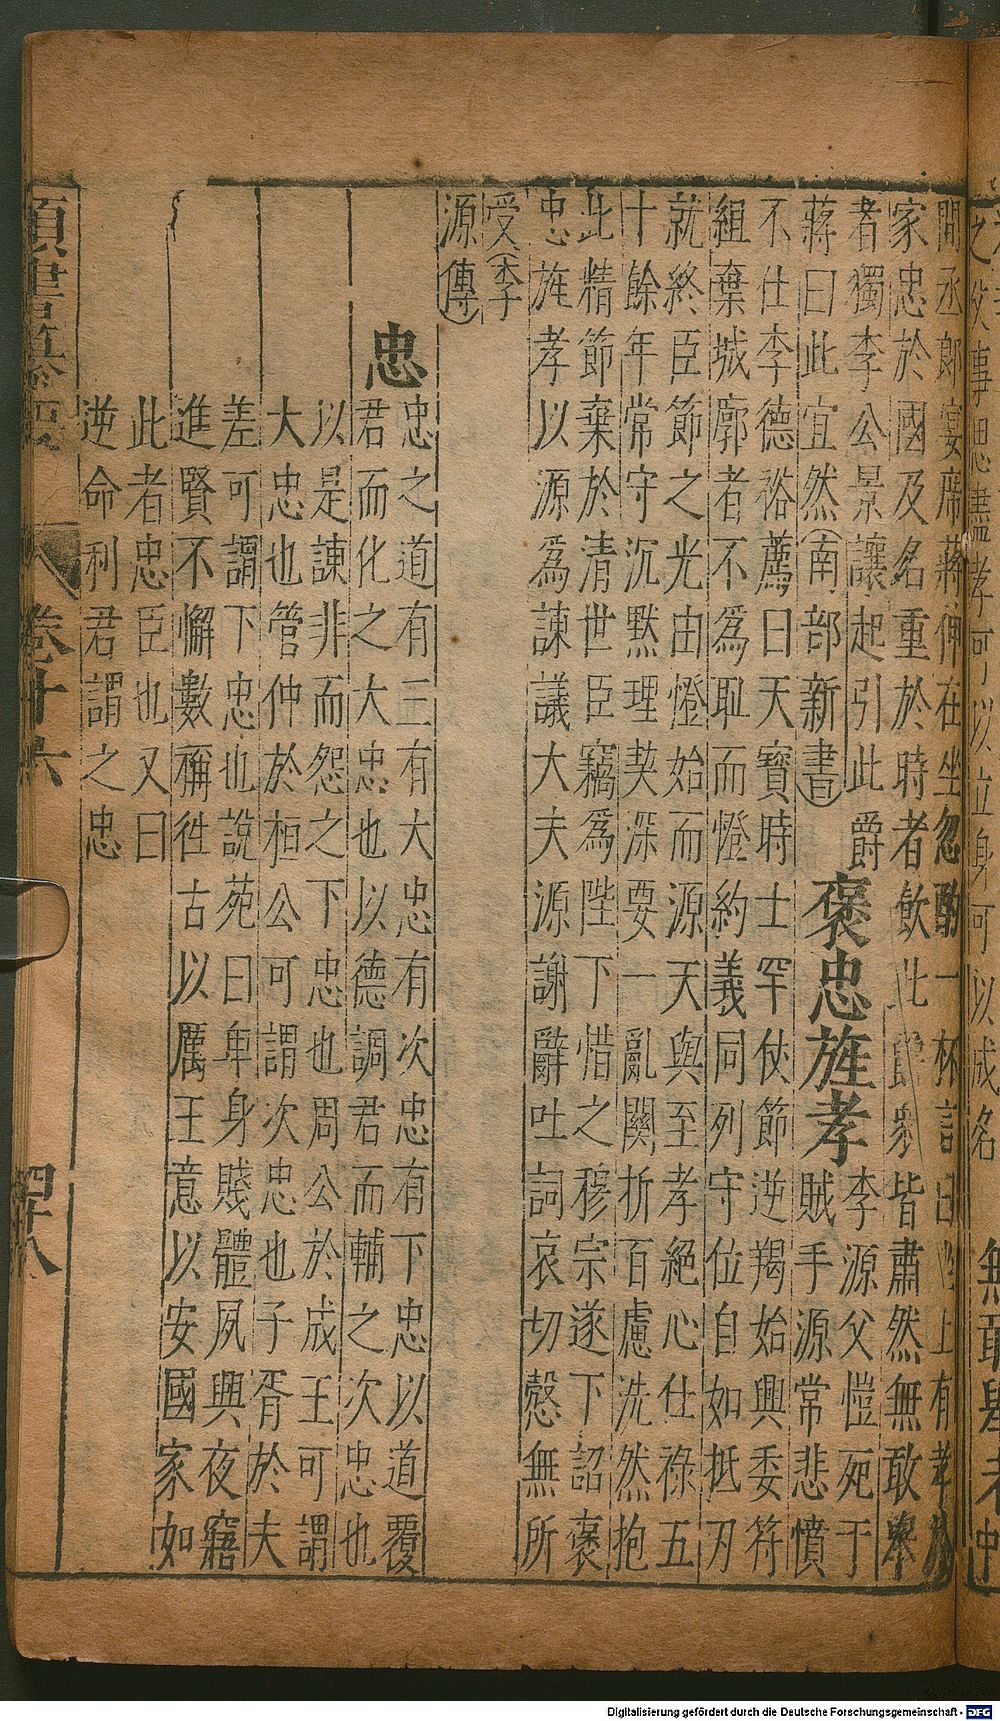 間丞郎宴席蔣伸在坐忽酌一杯言曰坐上有孝於
家忠於國及名重於時者飲此爵衆皆肅然無敢舉
者獨李公景讓起引此爵
蔣曰此宜然(南部新書)
褒忠旌孝
李源父愷死于
賊手源常悲憤
不仕李德裕薦曰天寶時士罕仗節逆羯始興委符
組棄城廓者不爲恥而燈約義同列守位自如抵刃
就終臣節之光由燈始而源天與至孝絕心仕祿五
十餘年常守沉默理契深要一亂關折百慮洗然抱
此精節棄於清世臣竊爲陛下惜之穆宗遂下詔褒
忠旌孝以源爲諫議大夫源謝辭吐詞哀切愨無所
受(李
源傳)
忠
忠之道有三有大忠有次忠有下忠以道覆
君而化之大忠也以德調君而輔之次忠也
以是諫非而怨之下忠也周公於成王可謂
大忠也管仲於桓公可謂次忠也子胥於夫
差可謂下忠也說苑曰卑身賤體夙興夜寤
進賢不懈數稱徃古以厲王意以安國家如
此者忠臣也又曰
逆命利君謂之忠
卷十六
四十八
Digitalisierung gefördert durch die Deutsche Forschungsgemeinschaft - DFG